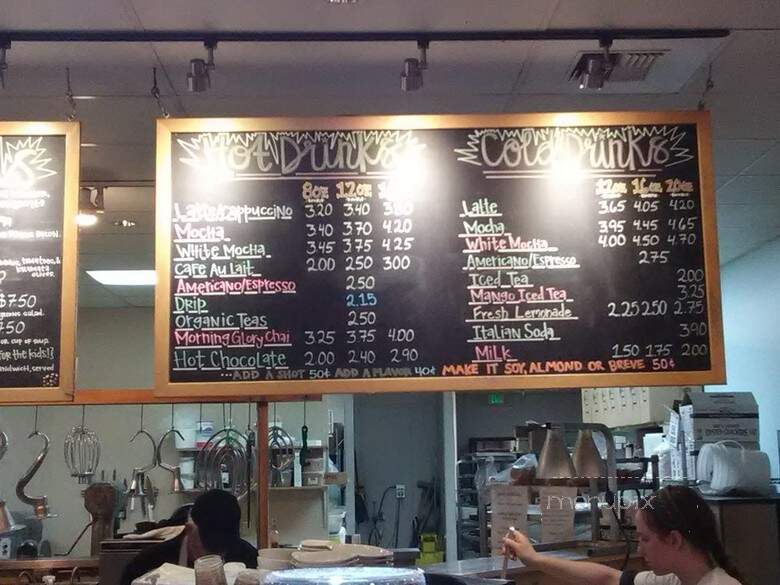 $7.50
FOR the kids!}
Hot Drinks
8oz 12oz
Latte/Cappuccino 3.20 3.40 3.80
Mocha 3.40 3.70 4.20
White Mocha 3.45 3.75 4.25
Cafe Au Lait 2.00 2.50 3.00
Americano/Espresso 2.50
Drip 2.15
Organic Teas 2.50
Morning Glory Chai 3.25 3.75 4.00
Hot Chocolate 2.00 2.40 2.90
...ADD A SHOT 50¢ ADD A FLAVOR 40¢
Cold Drinks
12oz 16oz 20oz
Latte 3.65 4.05 4.20
Mocha 3.95 4.45 4.65
White Mocha 4.00 4.50 4.70
Americano/Espresso 2.75
Iced Tea 2.00
Mango Iced Tea 3.25
Fresh Lemonade 2.25 2.50 2.75
Italian Soda 3.90
Milk 1.50 1.75 2.00
MAKE IT SOY, ALMOND OR BREVE 50¢
menupix